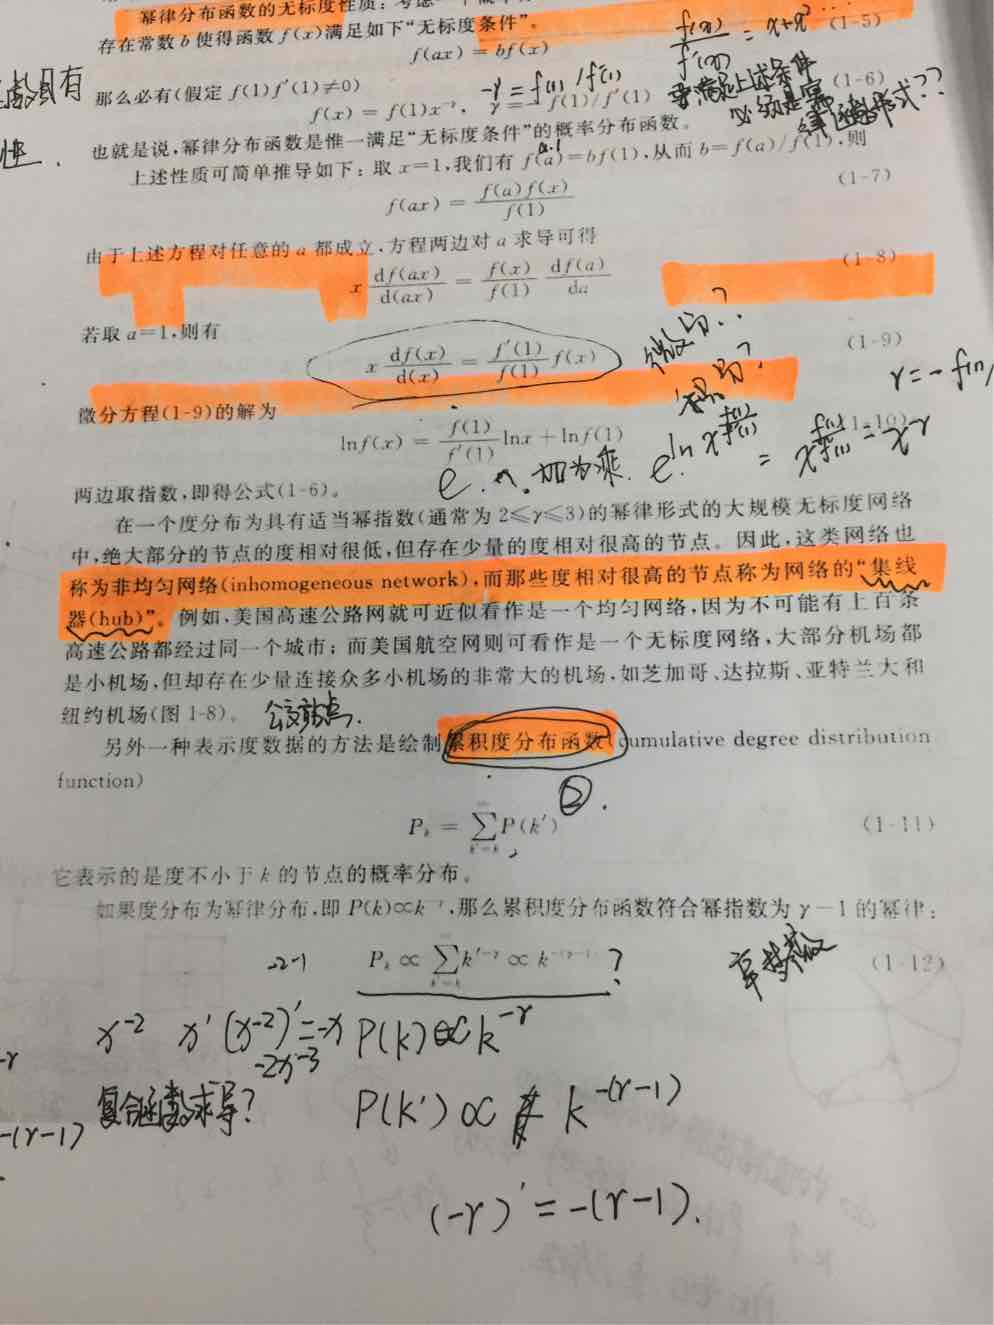 幂律分布函数的无标度性质：考虑一个概率
存在常数 b 使得函数 f(x)满足如下“无标度条件”。
f(ax) = bf(x)
(1-5)
那么必有(假定 f(1)f′(1)≠0)
f(x) = f(1)x⁻ᵞ, γ = −f(1)/f′(1)
(1-6)
也就是说,幂律分布函数是惟一满足“无标度条件”的概率分布函数。
上述性质可简单推导如下：取 x=1,我们有 f(a)=bf(1),从而 b=f(a)/f(1),则
f(ax) = f(a)f(x)/f(1)
(1-7)
由于上述方程对任意的 a 都成立,方程两边对 a 求导可得
x df(ax)/d(ax) = f(x)/f(1) df(a)/da
(1-8)
若取 a=1,则有
x df(x)/d(x) = f′(1)/f(1) f(x)
(1-9)
微分方程(1-9)的解为
lnf(x) = f(1)/f′(1) lnx + lnf(1)
(1-10)
e 加为乘.
两边取指数,即得公式(1-6)。
在一个度分布为具有适当幂指数(通常为 2≤γ≤3)的幂律形式的大规模无标度网络
中,绝大部分的节点的度相对很低,但存在少量的度相对很高的节点。因此,这类网络也
称为非均匀网络(inhomogeneous network),而那些度相对很高的节点称为网络的“集线
器(hub)”。例如,美国高速公路网就可近似看作是一个均匀网络,因为不可能有上百条
高速公路都经过同一个城市；而美国航空网则可看作是一个无标度网络,大部分机场都
是小机场,但却存在少量连接众多小机场的非常大的机场,如芝加哥、达拉斯、亚特兰大和
纽约机场(图 1-8)。
另外一种表示度数据的方法是绘制累积度分布函数(cumulative degree distribution
function)
②.
Pₖ = ∑P(k′)
(1-11)
它表示的是度不小于 k 的节点的概率分布。
如果度分布为幂律分布,即 P(k)∝k⁻ᵞ,那么累积度分布函数符合幂指数为 γ−1 的幂律：
Pₖ ∝ ∑k′⁻ᵞ ∝ k⁻⁽ᵞ⁻¹⁾ ?
(1-12)
x⁻² x′ (x⁻²)′=-x P(k)∝k⁻ᵞ
-2x⁻³
复合函数求导?
P(k′) ∝ k⁻⁽ᵞ⁻¹⁾
-(γ-1)
(-γ)′ = -(γ-1).